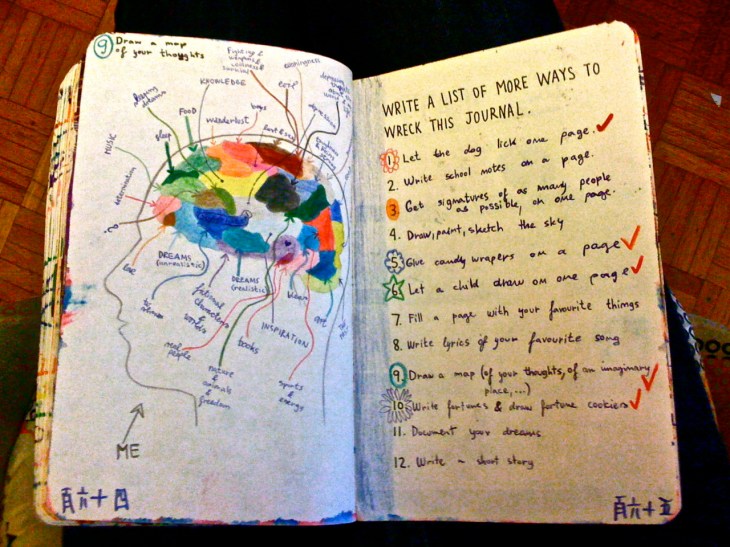 9 Draw a map
of your thoughts
KNOWLEDGE
FOOD
wanderlust
bugs
evil
sleep
MUSIC
determination
love
DREAMS
(fantasistic)
DREAMS
(realistic)
fictional
characters
&
worlds
INSPIRATION
books
real
people
nature
&
animals
&
freedom
sports
&
energy
art
ME
百六十四
WRITE A LIST OF MORE WAYS TO
WRECK THIS JOURNAL.
1. Let the dog lick one page.
2. Write school notes on a page.
3. Get signatures of as many people
as possible, on one page.
4. Draw, paint, sketch the sky
5. Glue candy wrapers on a page
6. Let a child draw on one page
7. Fill a page with your favourite things
8. Write lyrics of your favourite song
9. Draw a map (of your thoughts, of an imaginary
place,...)
10. Write fortunes & draw fortune cookies
11. Document your dreams
12. Write a short story
百六十五